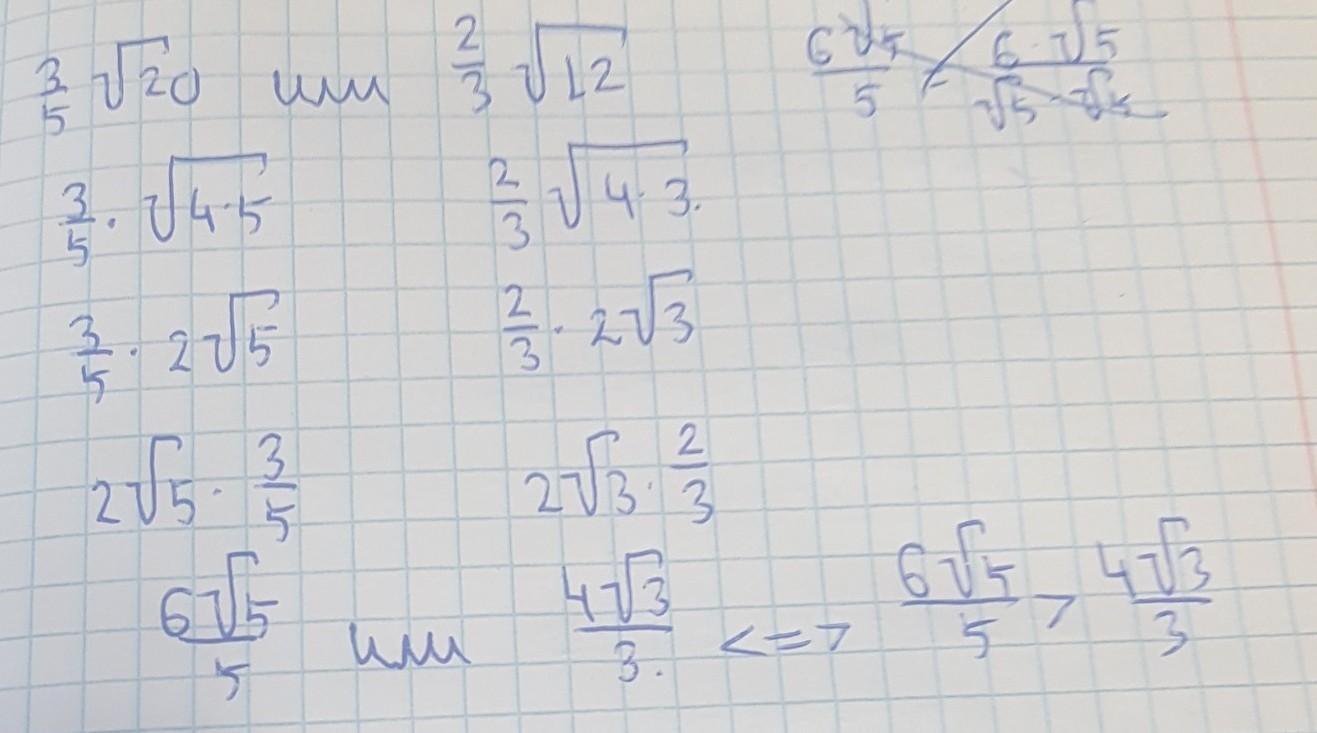 3/5 √20 или 2/3 √12 6√5/5 = 6·√5/√5·√5
3/5 · √4·5 2/3 √4·3.
3/5 · 2√5 2/3 · 2√3
2√5 · 3/5 2√3 · 2/3
6√5/5 или 4√3/3. <=> 6√5/5 > 4√3/3